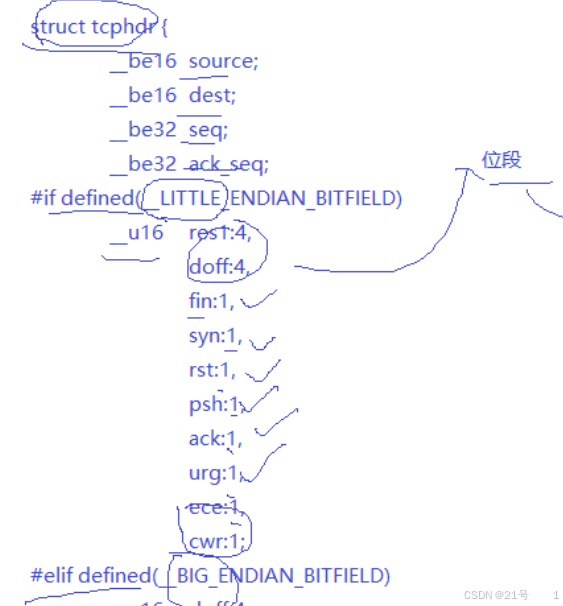 struct tcphdr {
__be16 source;
__be16 dest;
__be32 seq;
__be32 ack_seq;
#if defined(__LITTLE_ENDIAN_BITFIELD)
位段
__u16 res1:4,
doff:4,
fin:1,
syn:1,
rst:1,
psh:1,
ack:1,
urg:1,
ece:1,
cwr:1;
#elif defined(__BIG_ENDIAN_BITFIELD)
CSDN @21号 1